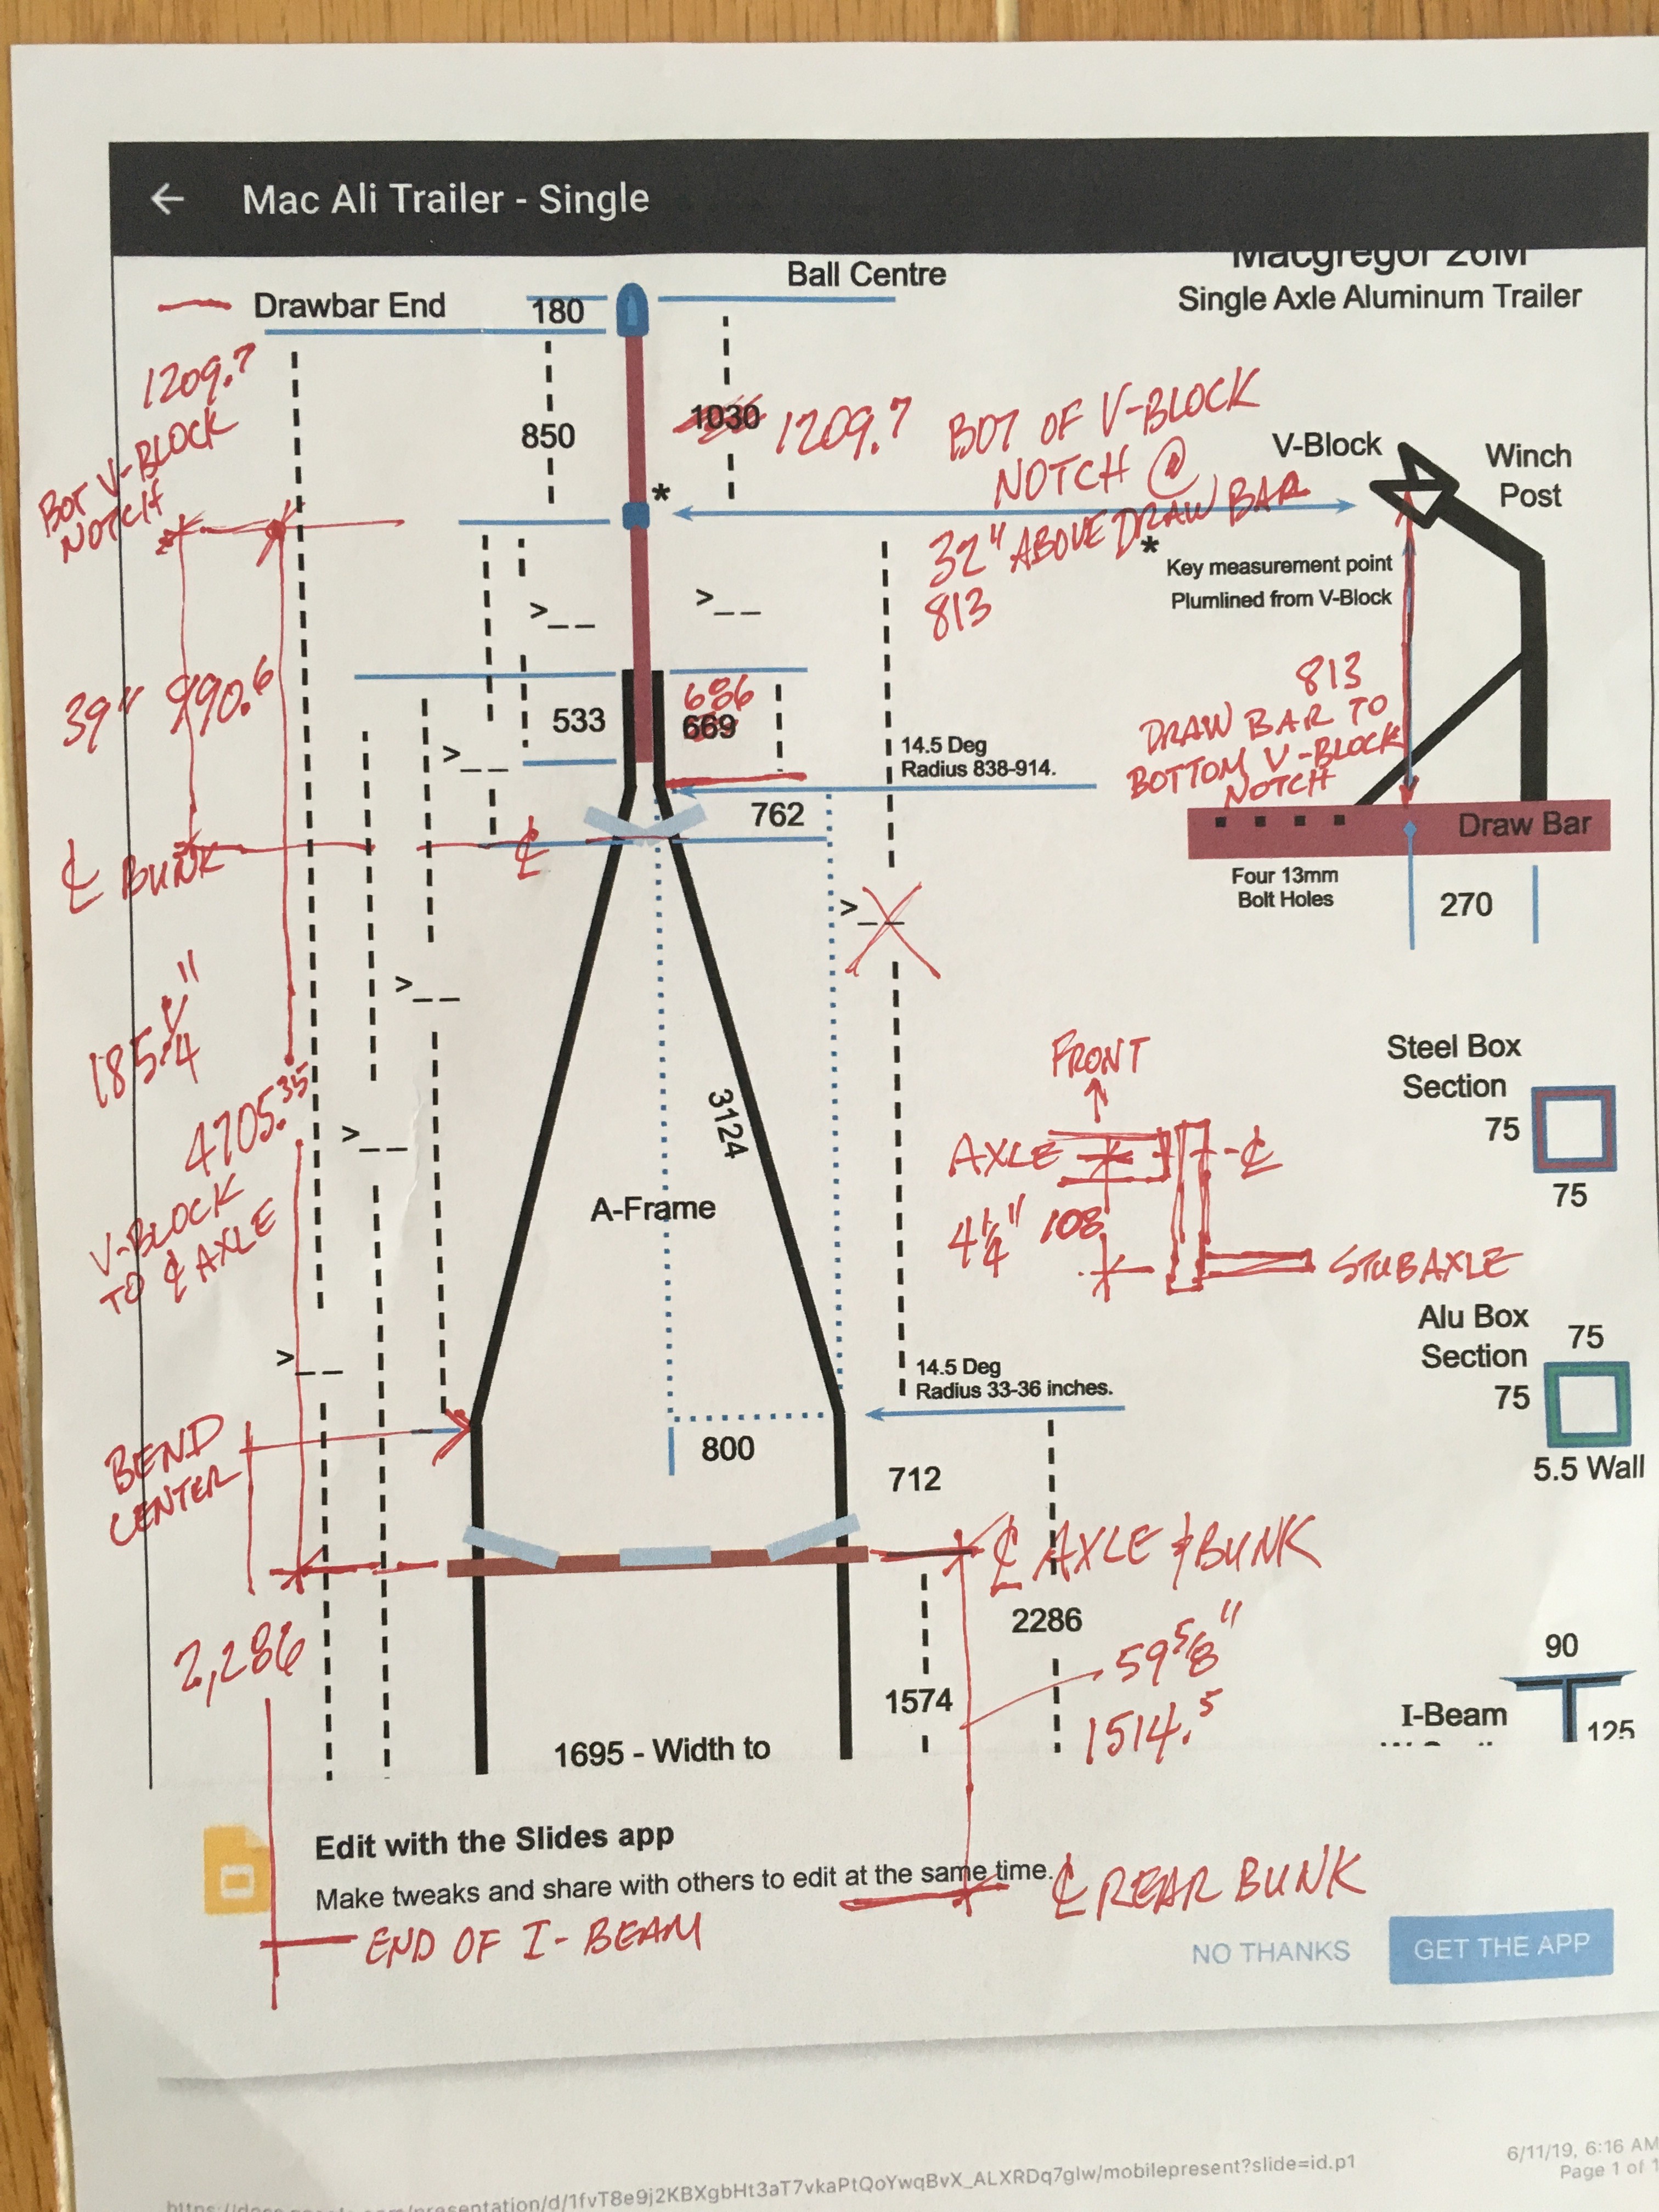 Mac Ali Trailer - Single
Ball Centre
Macgregor 26M
Single Axle Aluminum Trailer
Drawbar End
180
1209.7
BOT V-BLOCK
NOTCH
850
1030
1209.7
BOT OF V-BLOCK
NOTCH @
32" ABOVE DRAW BAR
813
V-Block
Winch
Post
*
*
Key measurement point
Plumlined from V-Block
>__
>__
39" 990.6
533
686
669
>__
14.5 Deg
Radius 838-914.
813
DRAW BAR TO
BOTTOM V-BLOCK
NOTCH
762
Draw Bar
℄ BUNK
℄
Four 13mm
Bolt Holes
270
>__
>__
185 1/4"
4705.35
V-BLOCK
TO ℄ AXLE
>__
3124
A-Frame
FRONT
AXLE
℄
4 1/4" 108
STUB AXLE
Steel Box
Section
75
75
Alu Box
Section
75
75
5.5 Wall
>__
14.5 Deg
Radius 33-36 inches.
BEND
CENTER
800
712
℄ AXLE & BUNK
2286
2,286
59 5/8"
1574
1514.5
90
I-Beam
125
1695 - Width to
Edit with the Slides app
Make tweaks and share with others to edit at the same time.
℄ REAR BUNK
END OF I-BEAM
NO THANKS
GET THE APP
6/11/19, 6:16 AM
Page 1 of 1